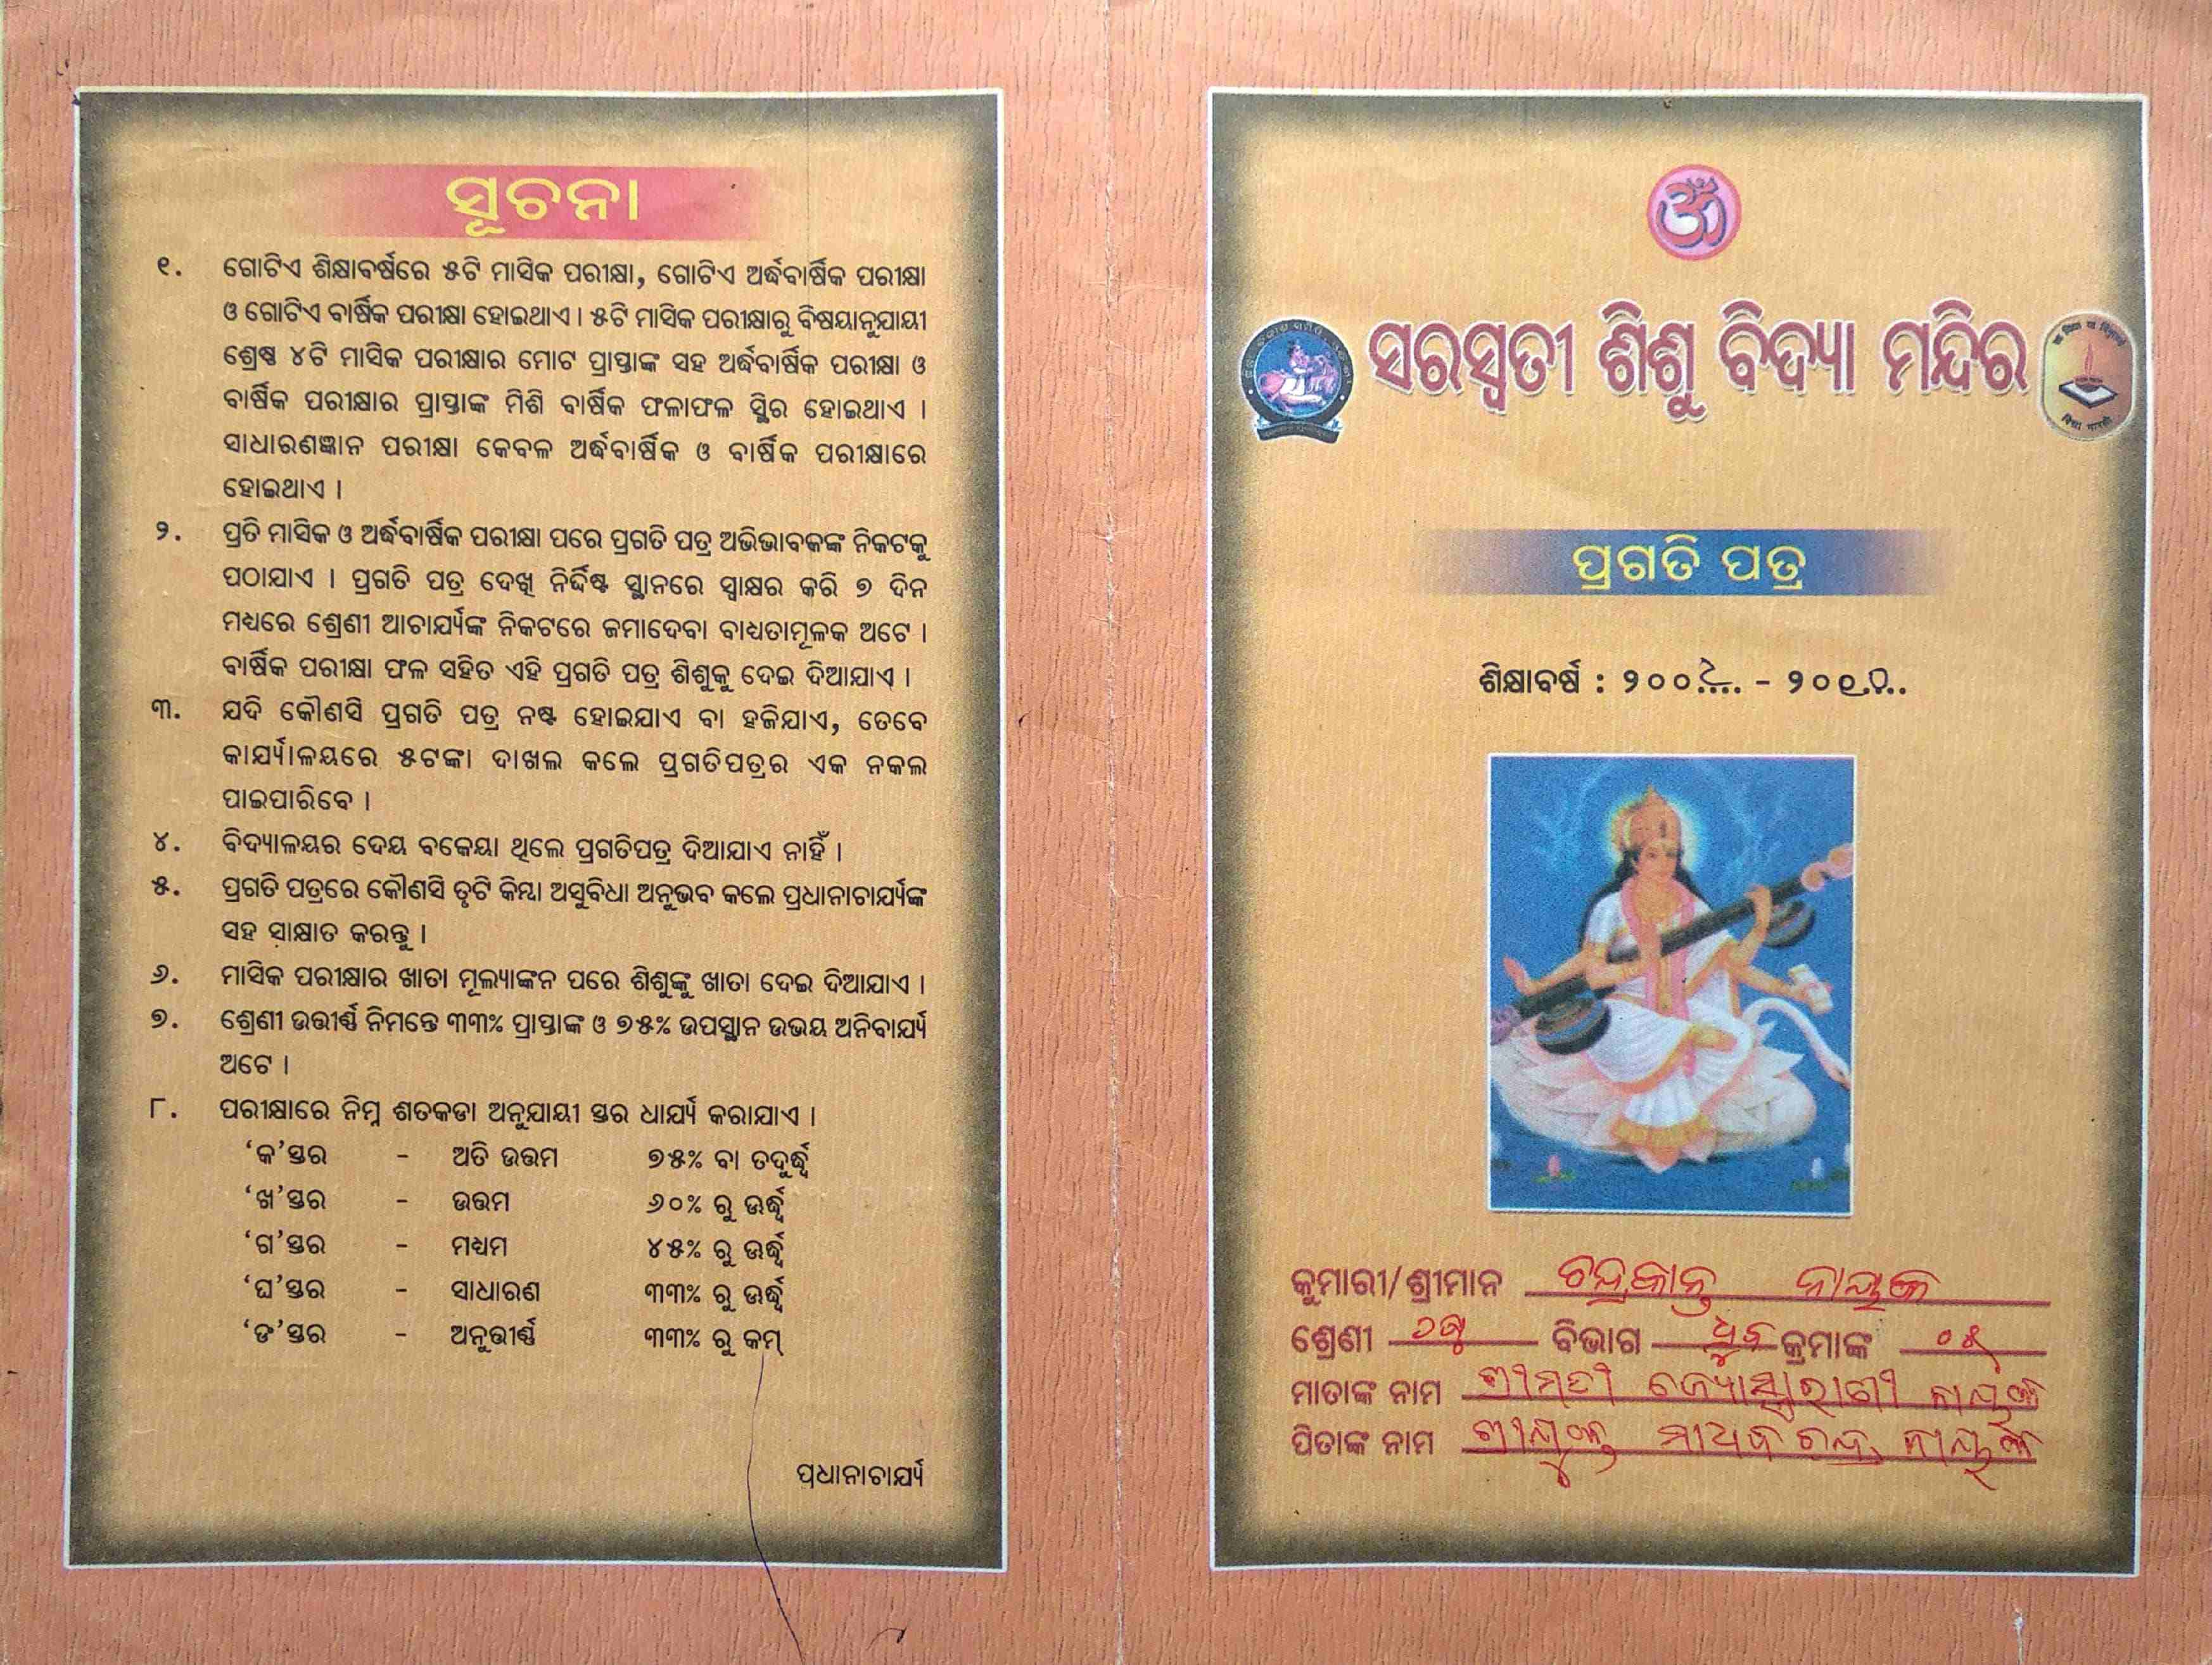 ସୂଚନା
୧. ଗୋଟିଏ ଶିକ୍ଷାବର୍ଷରେ ୫ଟି ମାସିକ ପରୀକ୍ଷା, ଗୋଟିଏ ଅର୍ଦ୍ଧବାର୍ଷିକ ପରୀକ୍ଷା
ଓ ଗୋଟିଏ ବାର୍ଷିକ ପରୀକ୍ଷା ହୋଇଥାଏ । ୫ଟି ମାସିକ ପରୀକ୍ଷାରୁ ବିଷୟାନୁଯାୟୀ
ଶ୍ରେଷ୍ଠ ୪ଟି ମାସିକ ପରୀକ୍ଷାର ମୋଟ ପ୍ରାପ୍ତାଙ୍କ ସହ ଅର୍ଦ୍ଧବାର୍ଷିକ ପରୀକ୍ଷା ଓ
ବାର୍ଷିକ ପରୀକ୍ଷାର ପ୍ରାପ୍ତାଙ୍କ ମିଶି ବାର୍ଷିକ ଫଳାଫଳ ସ୍ଥିର ହୋଇଥାଏ ।
ସାଧାରଣଜ୍ଞାନ ପରୀକ୍ଷା କେବଳ ଅର୍ଦ୍ଧବାର୍ଷିକ ଓ ବାର୍ଷିକ ପରୀକ୍ଷାରେ
ହୋଇଥାଏ ।
୨. ପ୍ରତି ମାସିକ ଓ ଅର୍ଦ୍ଧବାର୍ଷିକ ପରୀକ୍ଷା ପରେ ପ୍ରଗତି ପତ୍ର ଅଭିଭାବକଙ୍କ ନିକଟକୁ
ପଠାଯାଏ । ପ୍ରଗତି ପତ୍ର ଦେଖି ନିର୍ଦ୍ଦିଷ୍ଟ ସ୍ଥାନରେ ସ୍ୱାକ୍ଷର କରି ୭ ଦିନ
ମଧ୍ୟରେ ଶ୍ରେଣୀ ଆଚାର୍ଯ୍ୟଙ୍କ ନିକଟରେ ଜମାଦେବା ବାଧ୍ୟତାମୂଳକ ଅଟେ ।
ବାର୍ଷିକ ପରୀକ୍ଷା ଫଳ ସହିତ ଏହି ପ୍ରଗତି ପତ୍ର ଶିଶୁକୁ ଦେଇ ଦିଆଯାଏ ।
୩. ଯଦି କୌଣସି ପ୍ରଗତି ପତ୍ର ନଷ୍ଟ ହୋଇଯାଏ ବା ହଜିଯାଏ, ତେବେ
କାର୍ଯ୍ୟାଳୟରେ ୫ଟଙ୍କା ଦାଖଲ କଲେ ପ୍ରଗତିପତ୍ରର ଏକ ନକଲ
ପାଇପାରିବେ ।
୪. ବିଦ୍ୟାଳୟର ଦେୟ ବକେୟା ଥିଲେ ପ୍ରଗତିପତ୍ର ଦିଆଯାଏ ନାହିଁ ।
୫. ପ୍ରଗତି ପତ୍ରରେ କୌଣସି ତୃଟି କିମ୍ବା ଅସୁବିଧା ଅନୁଭବ କଲେ ପ୍ରଧାନାଚାର୍ଯ୍ୟଙ୍କ
ସହ ସାକ୍ଷାତ କରନ୍ତୁ ।
୬. ମାସିକ ପରୀକ୍ଷାର ଖାତା ମୂଲ୍ୟାଙ୍କନ ପରେ ଶିଶୁଙ୍କୁ ଖାତା ଦେଇ ଦିଆଯାଏ ।
୭. ଶ୍ରେଣୀ ଉତ୍ତୀର୍ଣ୍ଣ ନିମନ୍ତେ ୩୩% ପ୍ରାପ୍ତାଙ୍କ ଓ ୭୫% ଉପସ୍ଥାନ ଉଭୟ ଅନିବାର୍ଯ୍ୟ
ଅଟେ ।
୮. ପରୀକ୍ଷାରେ ନିମ୍ନ ଶତକଡା ଅନୁଯାୟୀ ସ୍ତର ଧାର୍ଯ୍ୟ କରାଯାଏ ।
‘କ’ସ୍ତର - ଅତି ଉତ୍ତମ ୭୫% ବା ତଦୁର୍ଦ୍ଧ୍ୱ
‘ଖ’ସ୍ତର - ଉତ୍ତମ ୬୦% ରୁ ଊର୍ଦ୍ଧ୍ୱ
‘ଗ’ସ୍ତର - ମଧ୍ୟମ ୪୫% ରୁ ଊର୍ଦ୍ଧ୍ୱ
‘ଘ’ସ୍ତର - ସାଧାରଣ ୩୩% ରୁ ଊର୍ଦ୍ଧ୍ୱ
‘ଙ’ସ୍ତର - ଅନୁତ୍ତୀର୍ଣ୍ଣ ୩୩% ରୁ କମ୍
ପ୍ରଧାନାଚାର୍ଯ୍ୟ
ସରସ୍ୱତୀ ଶିଶୁ ବିଦ୍ୟା ମନ୍ଦିର
विद्या भारती
ପ୍ରଗତି ପତ୍ର
ଶିକ୍ଷାବର୍ଷ : ୨୦୦୯ - ୨୦୧୦
କୁମାରୀ/ଶ୍ରୀମାନ ଚନ୍ଦ୍ରକାନ୍ତ ନାୟକ
ଶ୍ରେଣୀ ବିଭାଗ ଧୁବ କ୍ରମାଙ୍କ ୦୫
ମାତାଙ୍କ ନାମ ଶ୍ରୀମତୀ ଜ୍ୟୋସ୍ନାରାଣୀ ନାୟକ
ପିତାଙ୍କ ନାମ ଶ୍ରୀଯୁକ୍ତ ମାଧବ ଚନ୍ଦ୍ର ନାୟକ